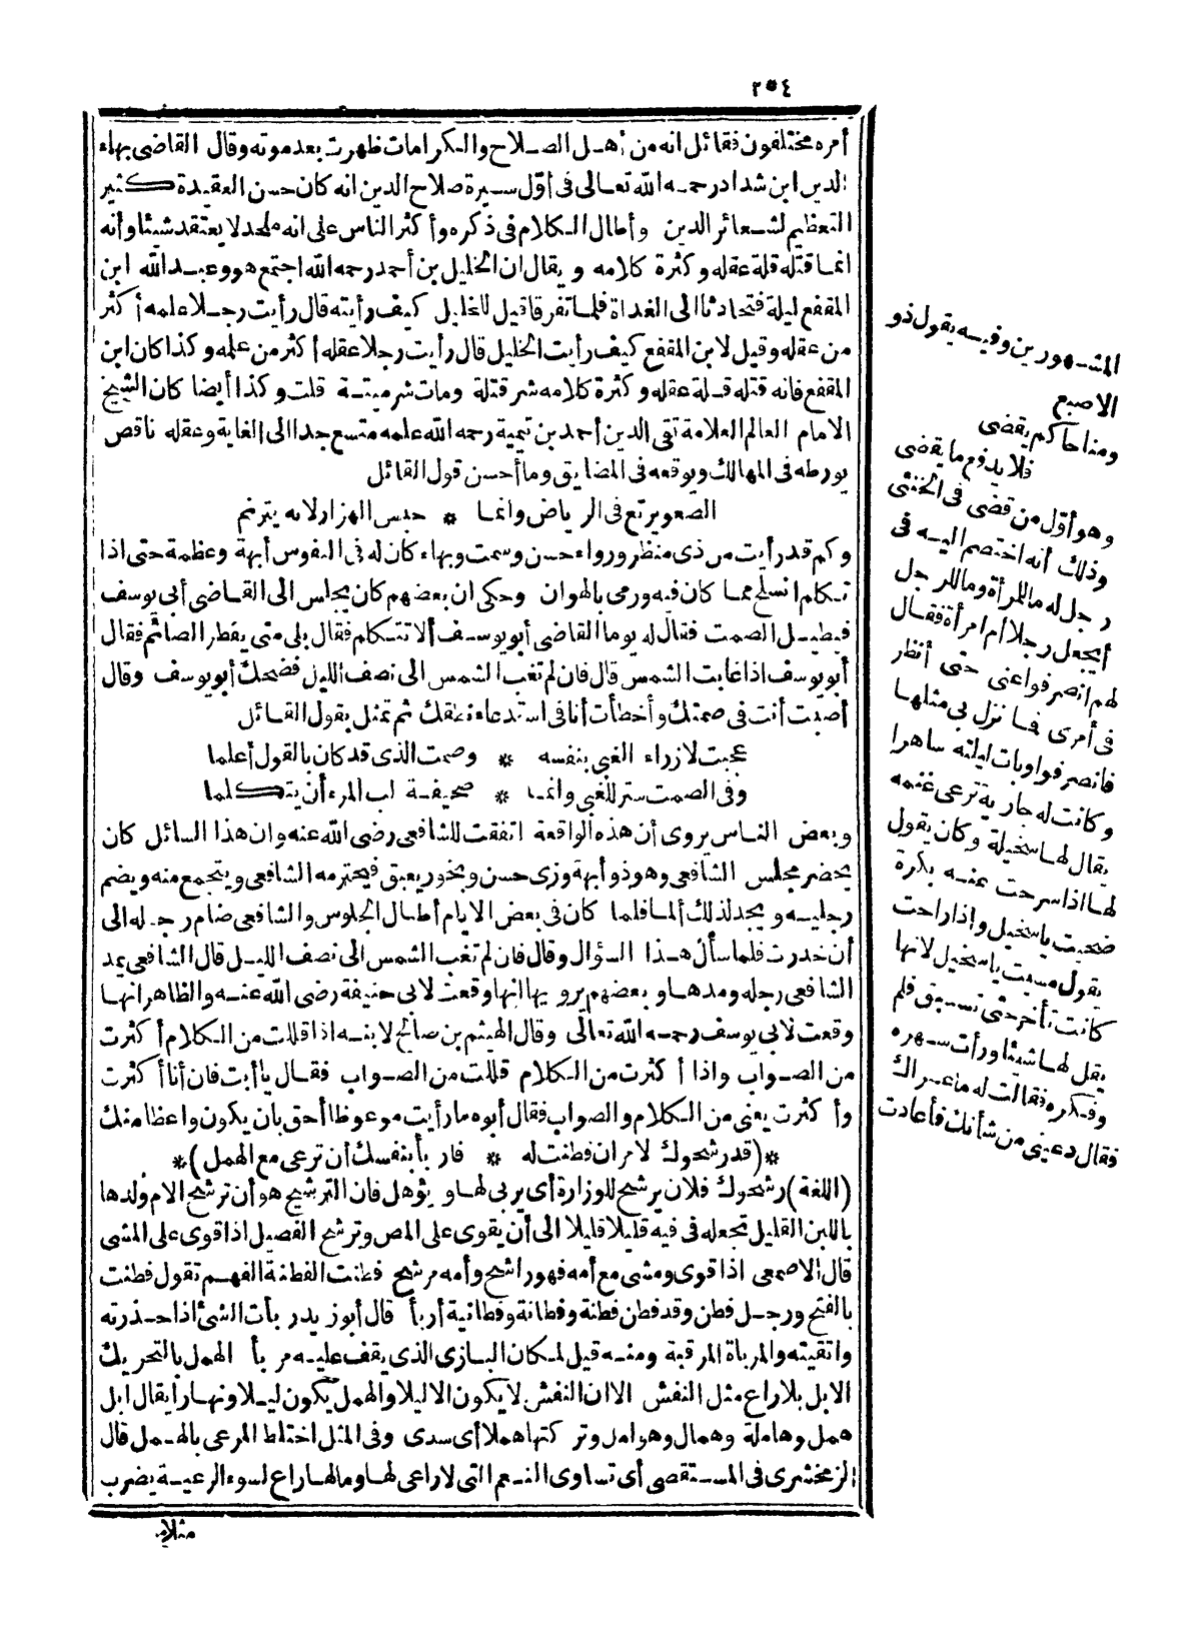 ٢٥٤
أمره مختلفون فقائل انه من أهل الصلاح والكرامات ظهرت بعد موته وقال القاضى بهاء
الدين ابن شداد رحمه الله تعالى فى أول سيرة صلاح الدين انه كان حسن العقيدة كثير
التعظيم لشعائر الدين وأطال الكلام فى ذكره وأكثر الناس على انه ملحد لا يعتقد شيئا وأنه
انما قتله قلة عقله وكثرة كلامه ويقال ان الخليل بن أحمد رحمه الله اجتمع هو وعبد الله ابن
المقفع ليلة فتحادثا الى الغداة فلما تفرقا قيل للخليل كيف رأيته قال رأيت رجلا علمه أكثر
من عقله وقيل لابن المقفع كيف رأيت الخليل قال رأيت رجلا عقله أكثر من علمه وكذا كان ابن
المقفع فانه قتله قلة عقله وكثرة كلامه شر قتلة ومات شر ميتة قلت وكذا أيضا كان الشيخ
الامام العالم العلامة تقى الدين أحمد بن تيمية رحمه الله علمه متسع جدا الى الغاية وعقله ناقص
يورطه فى المهالك ويوقعه فى المضايق وما أحسن قول القائل
الصعو يرتع فى الرياض وانما * حبس الهزار لانه يترنم
وكم قدر أيت من ذى منظر ورواء حسن وسمت وبهاء كان له فى النفوس أبهة وعظمة حتى اذا
تكلم انسلخ مما كان فيه ورمى بالهوان وحكى ان بعضهم كان يجلس الى القاضى أبى يوسف
فيطيل الصمت فقال له يوما القاضى أبو يوسف ألا تتكلم فقال بلى متى يفطر الصائم فقال
أبو يوسف اذا غابت الشمس قال فان لم تغب الشمس الى نصف الليل فضحك أبو يوسف وقال
أصبت أنت فى صمتك وأخطأت أنا فى استدعاء نطقك ثم تمثل بقول القائل
عجبت لازراء الغبى بنفسه * وصمت الذى قد كان بالقول أعلما
وفى الصمت ستر للغبى وانما * صحيفة لب المرء أن يتكلما
وبعض الناس يروى أن هذه الواقعة اتفقت للشافعى رضى الله عنه وان هذا السائل كان
يحضر مجلس الشافعى وهو ذو أبهة وزى حسن وبخور يعبق فيحترمه الشافعى ويتجمع منه ويضم
رجليه ويجد لذلك ألما فلما كان فى بعض الايام أطال الجلوس والشافعى ضام رجله الى
أن خدرت فلما سأل هذا السؤال وقال فان لم تغب الشمس الى نصف الليل قال الشافعى يمد
الشافعى رجله ومدها وبعضهم يرويها انها وقعت لابى حنيفة رضى الله عنه والظاهر انها
وقعت لابى يوسف رحمه الله تعالى وقال الهيثم بن صالح لابنه اذا قللت من الكلام أكثرت
من الصواب واذا أكثرت من الكلام قللت من الصواب فقال يا أبت فان أنا أكثرت
وأكثرت يعنى من الكلام والصواب فقال أبوه ما رأيت موعوظا أحق بان يكون واعظا منك
*(قد رشحوك لامر ان فطنت له * فاربأ بنفسك أن ترعى مع الهمل)*
(اللغة) رشحوك فلان يرشح للوزارة أى يربى لها ويؤهل فان الترشيح هو أن ترشح الام ولدها
باللبن القليل تجعله فى فيه قليلا قليلا الى أن يقوى على المص وترشح الفصيل اذا قوى على المشى
قال الاصمعى اذا قوى ومشى مع أمه فهو راشح وأمه مرشح فطنت الفطنة الفهم تقول فطنت
بالفتح ورجل فطن وقد فطن فطنة وفطانة وفطانية أربأ قال أبو زيد ربأت الشئ اذا حذرته
واتقيته والمرباة المرقبة ومنه قيل لمكان البازى الذى يقف عليه مربأ الهمل بالتحريك
الابل بلا راع مثل النفش الا ان النفش لا يكون الا ليلا والهمل يكون ليلا ونهارا يقال ابل
همل وهاملة وهمال وهوامل وتركتها هملا أى سدى وفى المثل اختلط المرعى بالهمل قال
الزمخشرى فى المستقصى أى تساوى النعم التى لا راعى لها وما لها راع لسوء الرعية يضرب
مثلا
المشهورين وفيه يقول ذو
الاصبع
ومنا حاكم يقضى
فلا يدفع ما يقضى
وهو أول من قضى فى الخنثى
وذلك أنه اختصم اليه فى
رجل له ما للمرأة وما للرجل
أيجعل رجلا أم امرأة فقال
لهم انصرفوا عنى حتى أنظر
فى أمرى فما نزل بى مثلها
فانصرفوا وبات ليلته ساهرا
وكانت له جارية ترعى غنمه
يقال لها سخيلة وكان يقول
لها اذا سرحت عنه بكرة
ضحيت يا سخيل واذا راحت
يقول مسيت يا سخيل لانها
كانت تأخر حتى تسبق فلم
يقل لها شيئا ورأت سهره
وفكره فقالت له ما عراك
فقال دعينى من شأنك فأعادت